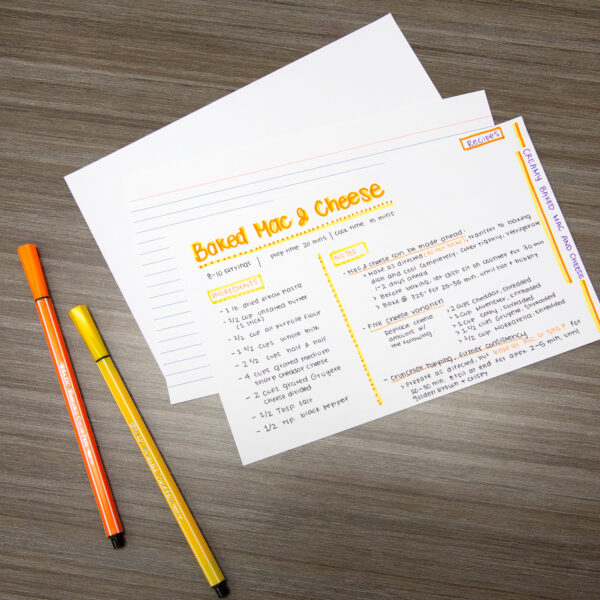 RECIPES
CREAMY BAKED MAC AND CHEESE
Baked Mac & Cheese
8-10 servings | prep time 20 mins | cook time 15 mins
INGREDIENTS
- 1 lb. dried elbow pasta
- 1/2 cup unsalted butter
(1 stick)
- 1/2 cup all purpose flour
- 1 1/2 cups whole milk
- 2 1/2 cups half & half
- 4 cups grated medium
sharp cheddar cheese
- 2 cups grated Gruyere
cheese divided
- 1/2 Tbsp salt
- 1/2 tsp. black pepper
NOTES
- Mac & cheese can be made ahead:
> Make as directed (do not bake), transfer to baking
dish and cool completely. Cover tightly, refrigerate
1-2 days ahead
> Before baking, let dish sit on counter for 30 min
> Bake @ 325° for 25-30 min. until hot + bubbly
- Five cheese variation
Replace cheese
amount w/
the following
> 2 cups cheddar, shredded
> 1 cup shredded
> 1 cup colby, shredded
> 1 1/2 cups Gruyere, shredded
> 1/2 cup mozzarella, shredded
- Crunchier topping, firmer consistency
> Prepare as directed, but bake at 350 F. for
20-30 min. Broil at end for appx. 2-5 min, until
golden brown + crispy